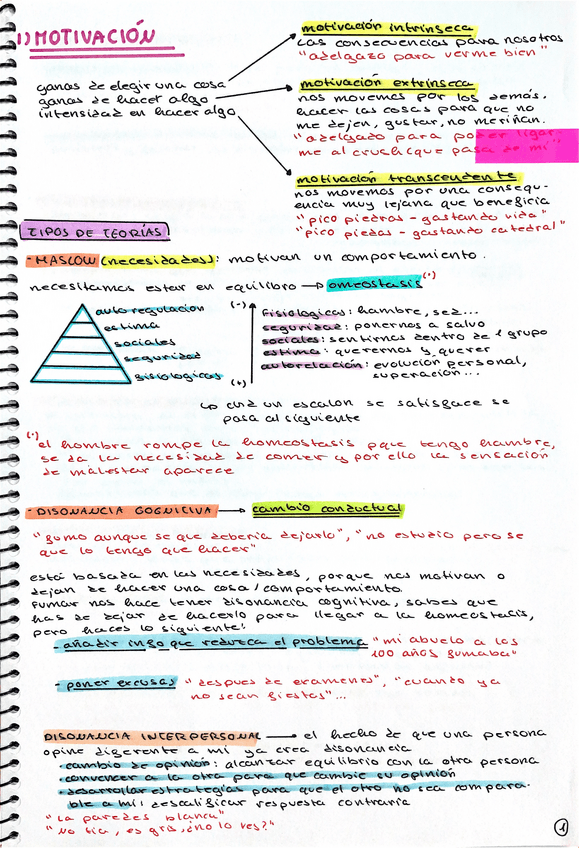 1) MOTIVACIÓN
ganas de elegir una cosa
ganas de hacer algo
intensidad en hacer algo
motivación intrínseca
Las consecuencias para nosotros
"adelgazo para verme bien"
motivación extrínseca
nos movemos por los demás.
hacer las cosas para que no
me dejen, gustar, no me riñan.
"adelgazo para poder ligar
me al crush (que pasa de mi"
motivación transcendente
nos movemos por una consequ-
encia muy lejana que beneficia
"pico piedras - gastando vida"
"pico piedas - gastando catedral"
TIPOS DE TEORÍAS
- MASLOW (necesidades): motivan un comportamiento.
necesitamos estar en equilibro → omeostasis (*)
auto regulación
estima
sociales
seguridad
fisiologicas
(-)
(+)
fisiologicas: hambre, sed...
seguridad: ponernos a salvo
sociales: sentirnos dentro de l grupo
estima: querernos y querer
autorelación: evolución personal,
superación...
↳ cind un escalon se satisface se
pasa al siguiente
(*) el hombre rompe la homeostasis pque tengo hambre,
se da la necesidad de comer y por ello la sensación
de malestar aparece
- DISONANCIA COGNITIVA → cambio conductual
"fumo aunque se que deberia dejarlo", "no estudio pero se
que lo tengo que hacer"
está basada en las necesidades, porque nos motivan o
dejan de hacer una cosa/comportamiento.
Fumar nos hace tener disonancia cognitiva, sabes que
has de dejar de hacerlo para llegar a la homeostasis,
pero haces lo siguiente:
- añadir ingo que reduzca el problema "mi abuelo a los
100 años fumaba"
- poner excusas "despues de examenes", "cuando ya
no sean fiestas"...
DISONANCIA INTERPERSONAL → el hecho de que una persona
opine diferente a mi ya crea disonancia
· cambio de opinión: alcanzar equilibrio con la otra persona
· convencer a la otra para que cambie su opinión
· desarrollar estrategías para que el otro no sea compara-
ble a mi: descalificar respuesta contraria
"La paredes blanca"
"No tia, es gris, ¿no lo ves?"
1